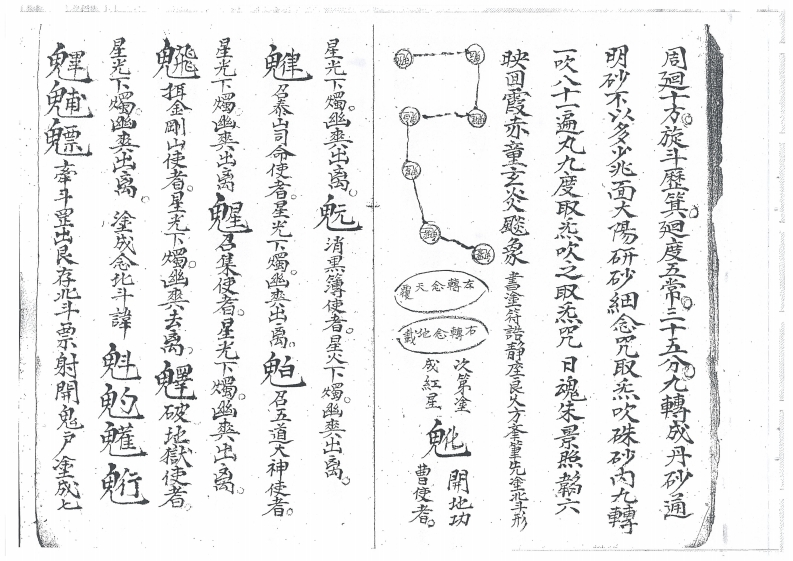 周廻十方旋斗歷箕廻度五常三十五分九轉成丹砂通
明砂不以多少兆面大陽研砂細念咒取炁吹硃砂內九轉
一吹八十一遍九九度取炁吹之取炁咒 日魂朱景照韜六
映回霞赤童玄炎飈象 書塗符誥靜座良久方奎筆先塗北斗形
左轉念天罡
右轉念地
次第塗
成紅星
魤 開地功
曹使者
星光下燭幽爽出离 魭 消黑簿使者星火下燭幽爽出离
召泰山司命使者星光下燭幽爽出离 䰟 召五道大神使者
星光下燭幽爽出离 召集使者星光下燭幽爽出离
金剛山使者星光下燭幽爽去离 破地獄使者
星光下燭幽爽出离 塗成念北斗諱 魁 魡 䰢
魓 牽斗罡出艮存北斗票射開鬼戶塗成七